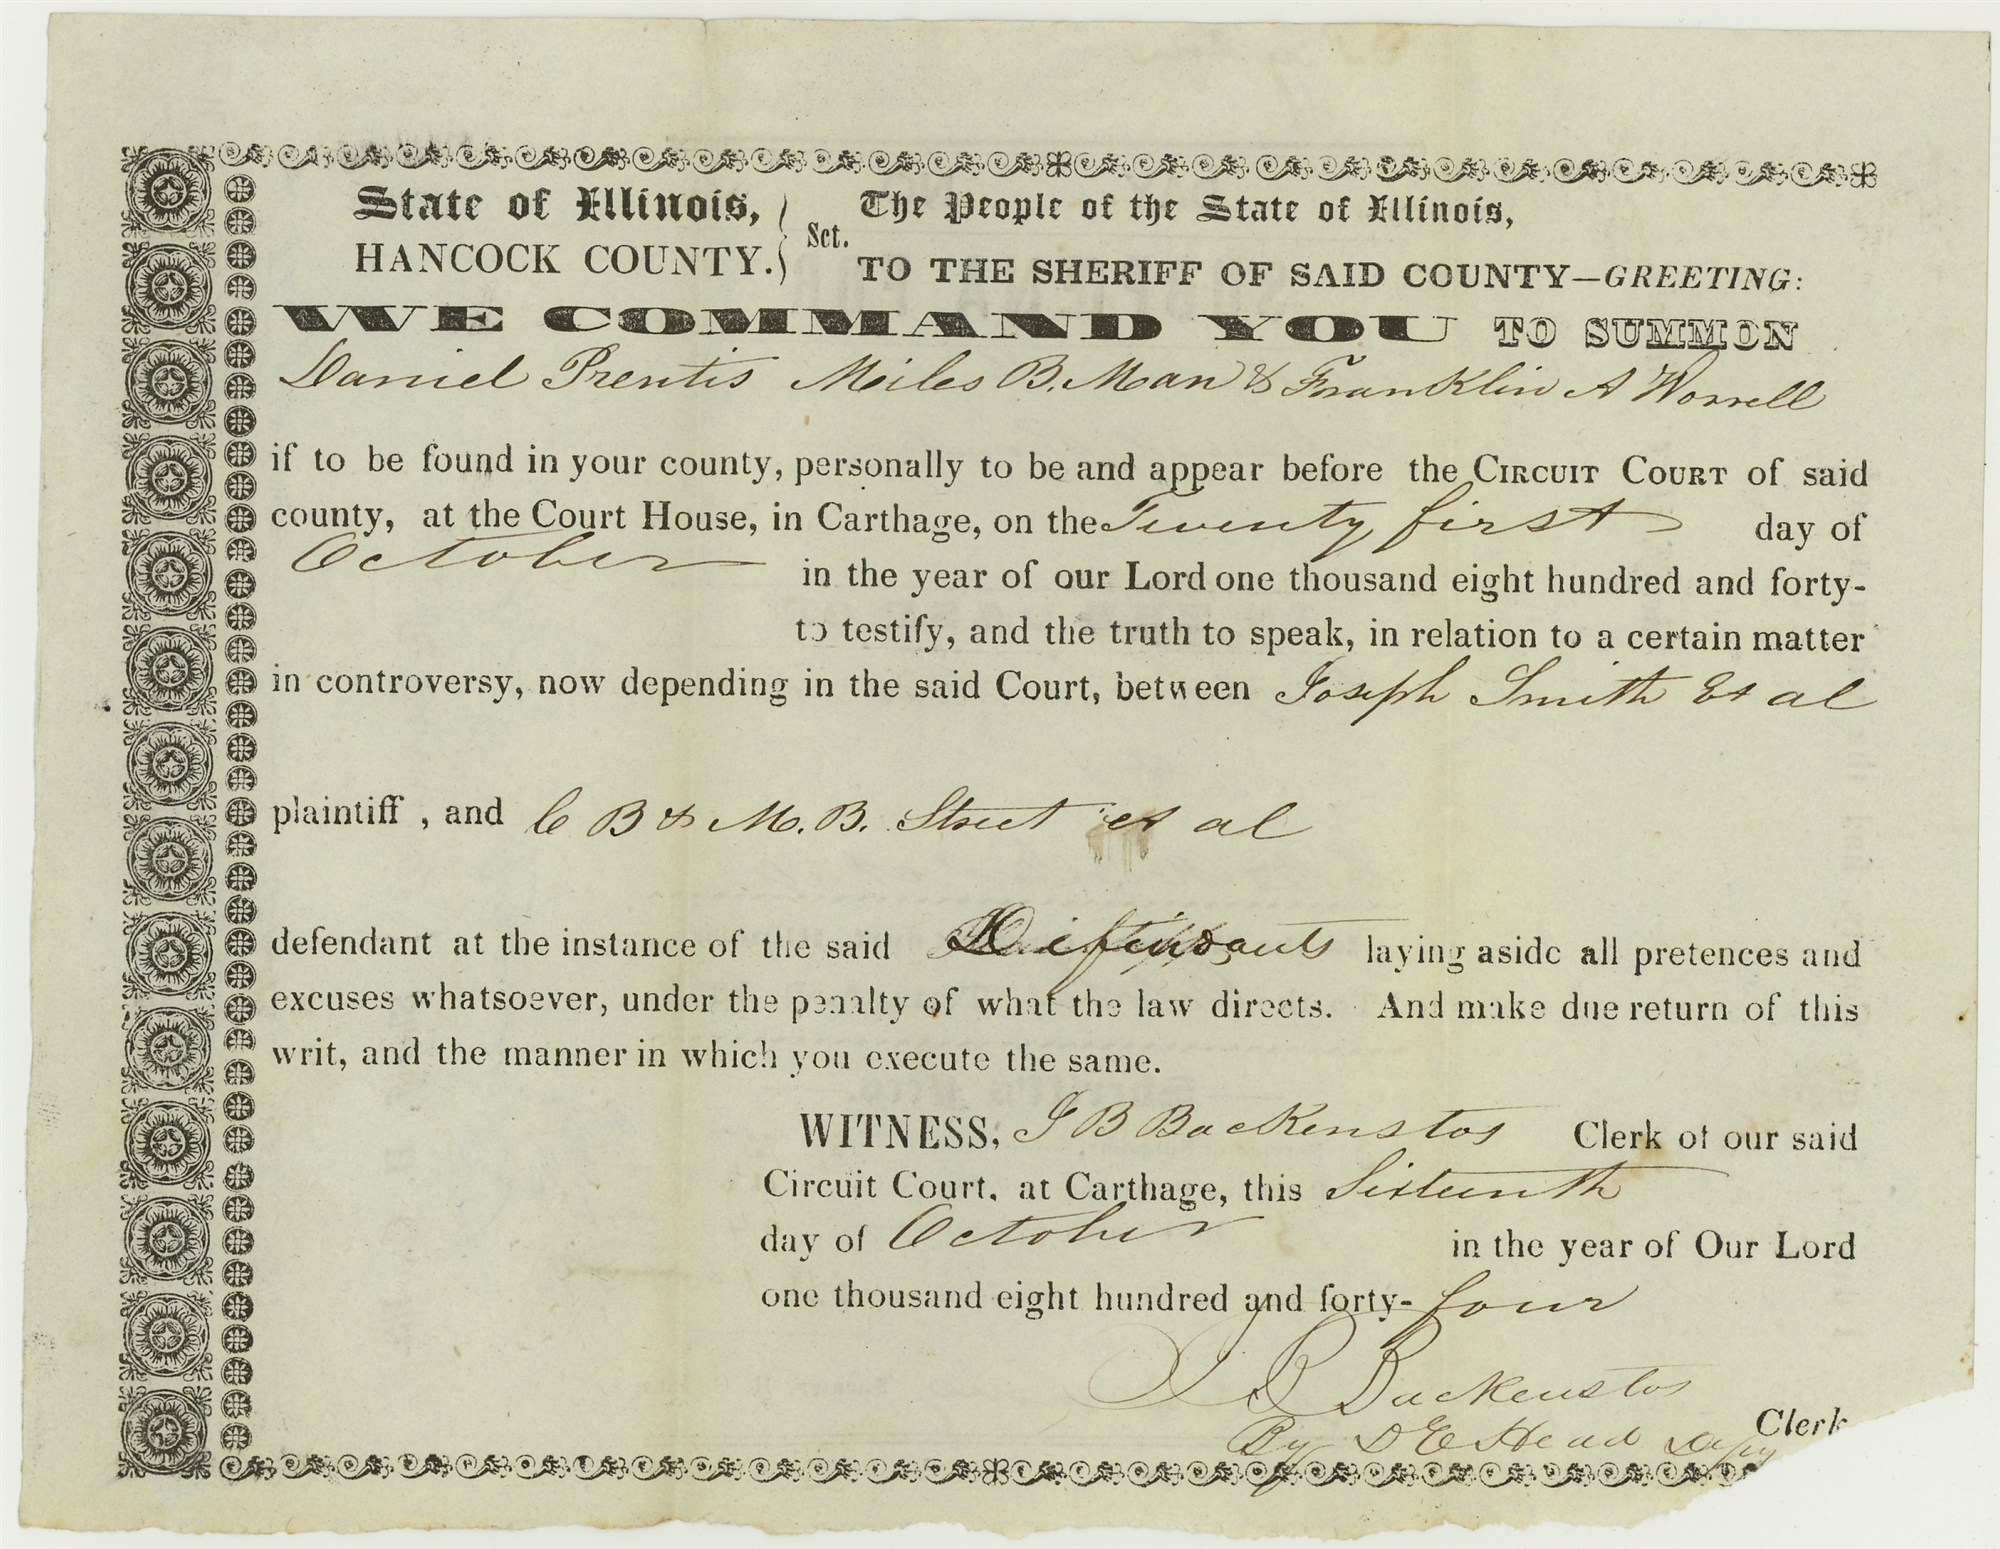 State of Illinois,
HANCOCK COUNTY.
Sct.
The People of the State of Illinois,
TO THE SHERIFF OF SAID COUNTY—GREETING:
WE COMMAND YOU TO SUMMON
Daniel Prentis Miles B. Man & Franklin A Worrell
if to be found in your county, personally to be and appear before the CIRCUIT COURT of said
county, at the Court House, in Carthage, on the Twenty first day of
October in the year of our Lord one thousand eight hundred and forty-
to testify, and the truth to speak, in relation to a certain matter
in controversy, now depending in the said Court, between Joseph Smith Et al
plaintiff , and C B & M. B. Street et al
defendant at the instance of the said Defendants laying aside all pretences and
excuses whatsoever, under the penalty of what the law directs. And make due return of this
writ, and the manner in which you execute the same.
WITNESS, J B Backenstos Clerk of our said
Circuit Court, at Carthage, this Sixteenth
day of October in the year of Our Lord
one thousand eight hundred and forty-four
J B Backenstos
Clerk
By D E Head